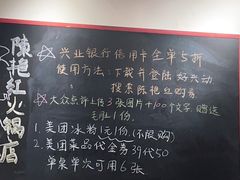 陳艳紅火锅店
☆兴业银行信用卡全单5折
使用方法：下载并登陆好兴动，
搜索陈艳红购券
☆大众点评上传3张图片+100个文字，赠送
毛肚1份
1.美团冰粉1元1份，(不限购)
2.美团菜品代金券39代50
单桌单次可用6张